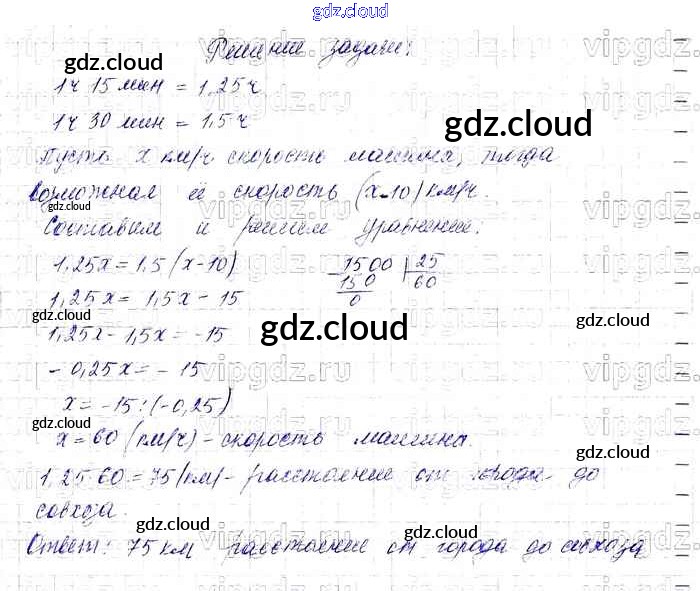 gdz.cloud
Решение задачи:
1ч 15 мин = 1,25ч
1ч 30 мин = 1,5ч
Пусть x км/ч скорость машины, тогда
возможная её скорость (x-10) км/ч.
Составим и решим уравнение:
1,25x = 1,5 (x-10)
1,25x = 1,5x - 15
1,25x - 1,5x = -15
- 0,25x = - 15
x = -15:(-0,25)
x = 60 (км/ч) - скорость машины.
1500 | 25
150 60
0
1,25 60 = 75 (км) - расстояние от города до
совхоза.
Ответ: 75 км расстояние от города до совхоза
gdz.cloud
gdz.cloud
gdz.cloud
gdz.cloud
gdz.cloud
gdz.cloud
gdz.cloud
gdz.cloud
gdz.cloud
gdz.cloud
gdz.cloud
gdz.cloud
vipgdz.ru